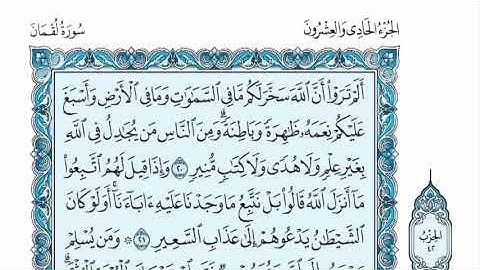 الجُزءُ الحَادِي وَالعِشْرُونَ
سُورَةُ لُقْمَانَ
أَلَمْ تَرَوْا۟ أَنَّ ٱللَّهَ سَخَّرَ لَكُم مَّا فِى ٱلسَّمَـٰوَٰتِ وَمَا فِى ٱلْأَرْضِ وَأَسْبَغَ
عَلَيْكُمْ نِعَمَهُۥ ظَـٰهِرَةً وَبَاطِنَةً ۗ وَمِنَ ٱلنَّاسِ مَن يُجَـٰدِلُ فِى ٱللَّهِ
بِغَيْرِ عِلْمٍ وَلَا هُدًى وَلَا كِتَـٰبٍ مُّنِيرٍ ٢٠ وَإِذَا قِيلَ لَهُمُ ٱتَّبِعُوا۟
مَآ أَنزَلَ ٱللَّهُ قَالُوا۟ بَلْ نَتَّبِعُ مَا وَجَدْنَا عَلَيْهِ ءَابَآءَنَآ ۚ أَوَلَوْ كَانَ
ٱلشَّيْطَـٰنُ يَدْعُوهُمْ إِلَىٰ عَذَابِ ٱلسَّعِيرِ ٢١ ۞ وَمَن يُسْلِمْ
الحِزْبُ
٤٢